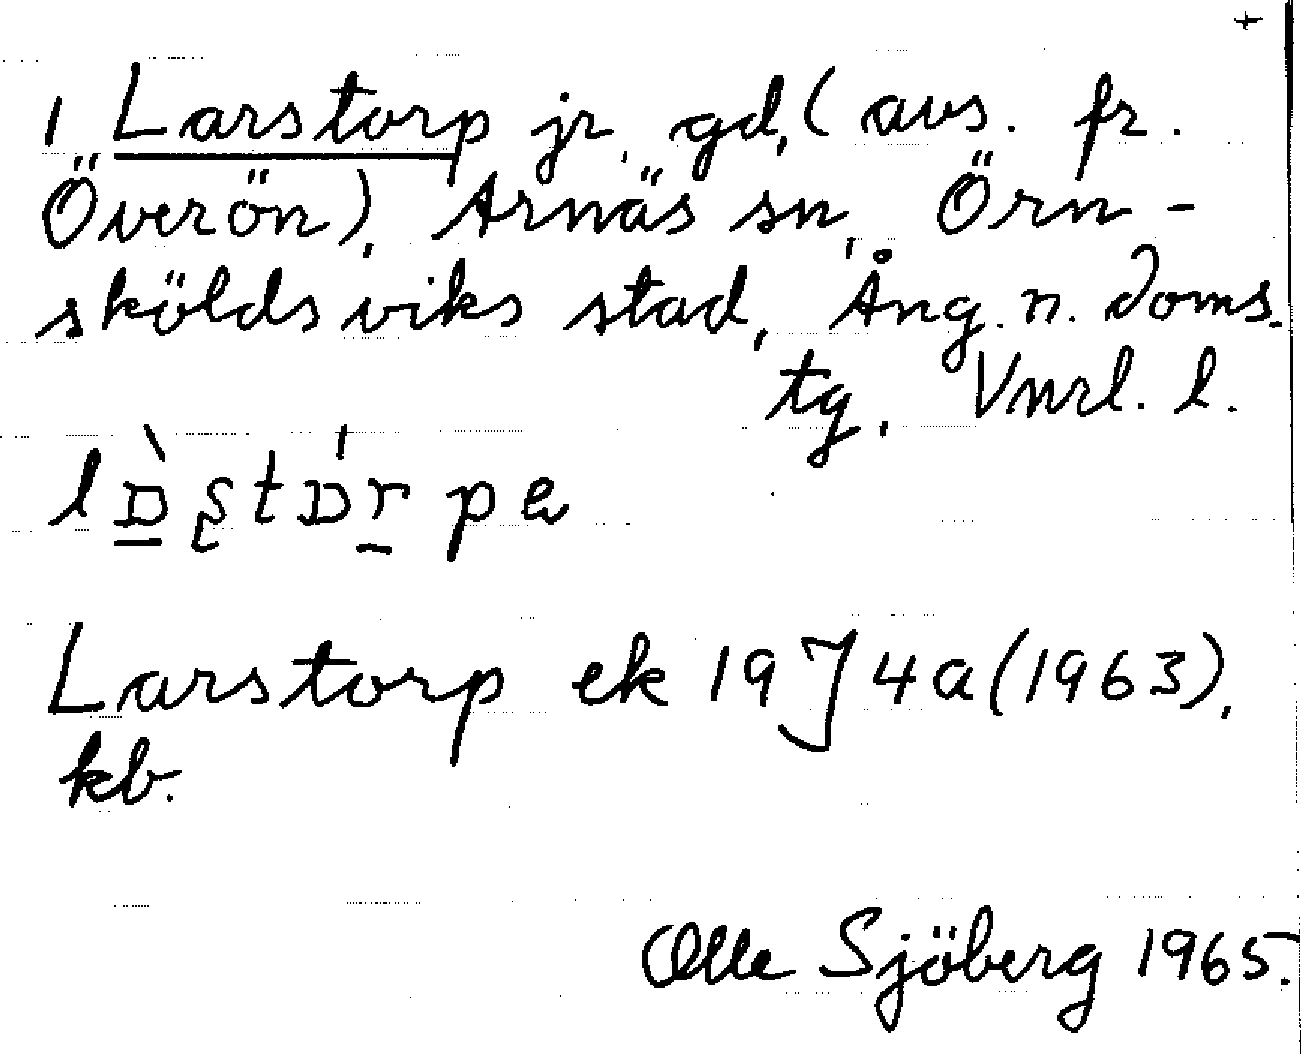 +
1 Larstorp jr, gd, (avs. fr.
Överön), Arnäs sn, Örn-
sköldsviks stad, Ång. n. doms.
tg, Vnrl. l.
Larstorp ek 19J4a (1963),
kb.
Olle Sjöberg 1965.